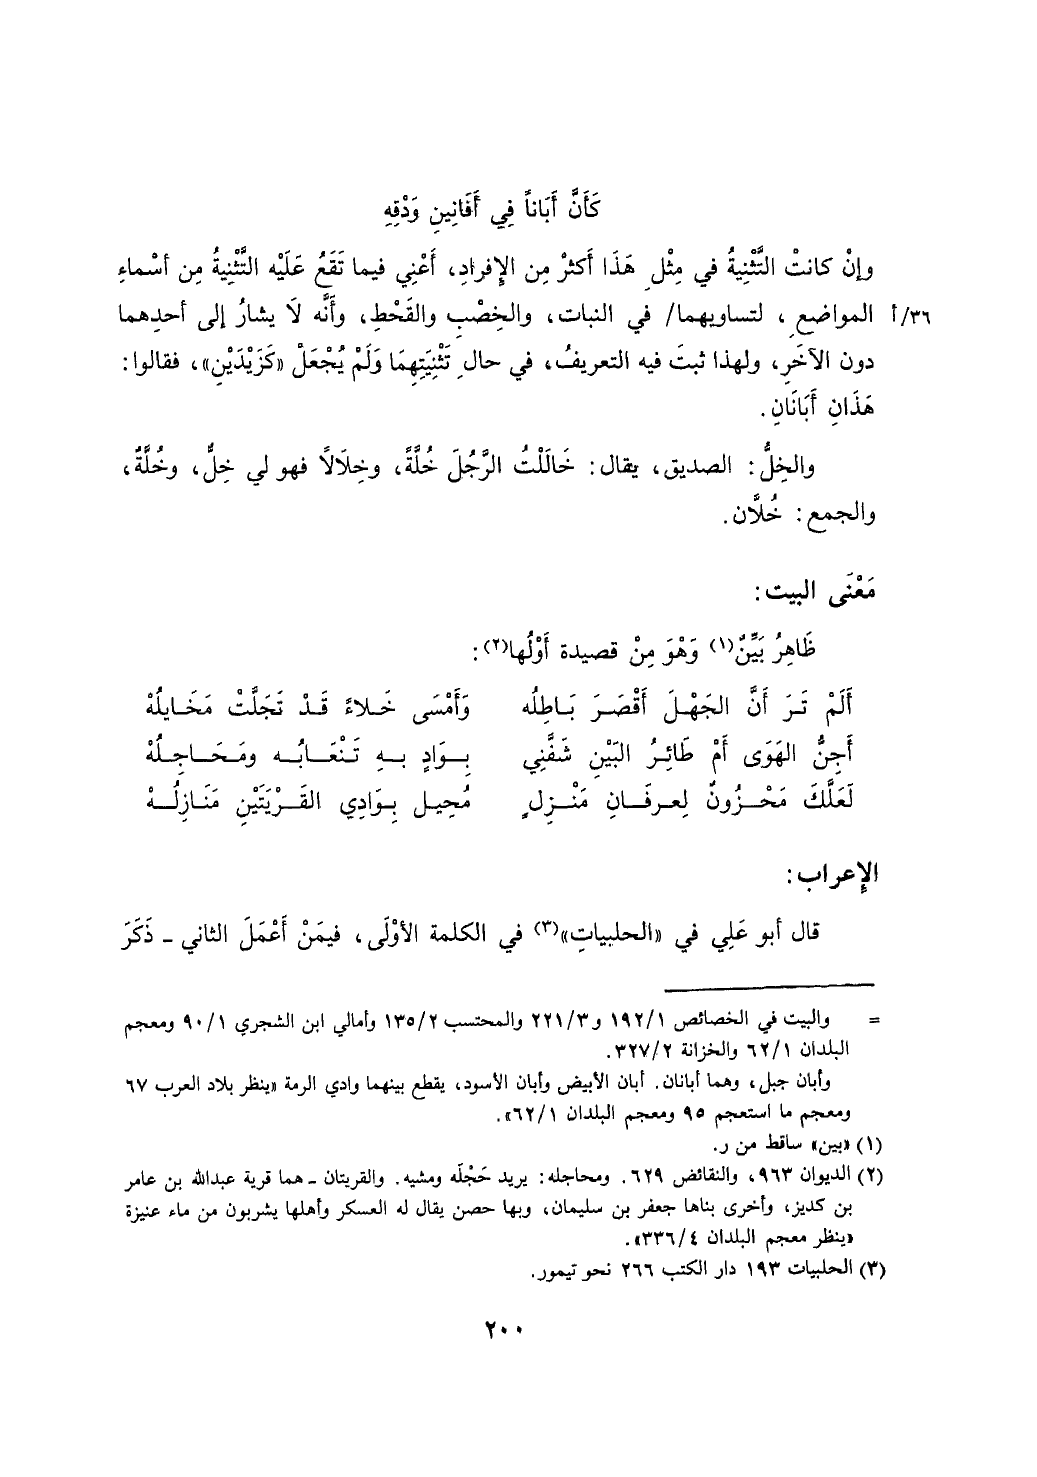 كَأَنَّ أَبَاناً فِي أَفَانِينِ وَدْقِهِ
وإنْ كانتْ التَّثْنِيةُ في مِثْلِ هَذَا أكثرْ مِن الإفرادِ، أَعْنِي فيما تَقَعُ عَلَيْه التَّثْنِيةُ مِن أسْماءِ
٣٦/أ المواضعِ، لتساويهما/ في النبات، والخِصْبِ والقَحْطِ، وأَنَّه لاَ يشارُ إلى أحدِهما
دون الآخَرِ، ولهذا ثبتَ فيه التعريفُ، في حالِ تَثْنِيَتِهِمَا وَلَمْ يُجْعَلْ «كَزَيْدَيْنِ»، فقالوا:
هَذَانِ أَبَانَانِ.
والخِلُّ: الصديق، يقال: خَالَلْتُ الرَّجُلَ خُلَّةً، وخِلَالاً فهو لي خِلٌّ، وخُلَّةٌ،
والجمع: خُلاَّن.
مَعْنَى البيت:
ظَاهِرُ بَيِّنٌ(١) وَهْوَ مِنْ قصيدة أَوْلُها(٢):
أَلَمْ تَرَ أَنَّ الجَهْلَ أَقْصَرَ بَاطِلُه وَأَمْسَى خَلاءً قَدْ تَجَلَّتْ مَخَايلُهْ
أَجِنُّ الهَوَى أَمْ طَائِرُ البَيْنِ شَفَّنِي بِوَادٍ بِهِ تَنْعَابُه ومَحَاجِلُهْ
لَعَلَّكَ مَحْزُونٌ لِعرفَانِ مَنْزِلٍ مُحِيل بِوَادِي القَرْيَتَيْنِ مَنَازِلُهْ
الإعراب:
قال أبو عَلِي في «الحلبياتِ»(٣) في الكلمة الأوْلَى، فيمَنْ أَعْمَلَ الثاني ـ ذَكَرَ
= والبيت في الخصائص ١٩٢/١ و٢٢١/٣ والمحتسب ١٣٥/٢ وأمالي ابن الشجري ٩٠/١ ومعجم
البلدان ٦٢/١ والخزانة ٣٢٧/٢.
وأبان جبل، وهما أبانان. أبان الأبيض وأبان الأسود، يقطع بينهما وادي الرمة «ينظر بلاد العرب ٦٧
ومعجم ما استعجم ٩٥ ومعجم البلدان ٦٢/١».
(١) «بين» ساقط من ر.
(٢) الديوان ٩٦٣، والنقائض ٦٢٩. ومحاجله: يريد حَجْلَه ومشيه. والقريتان ـ هما قرية عبدالله بن عامر
بن كديز، وأخرى بناها جعفر بن سليمان، وبها حصن يقال له العسكر وأهلها يشربون من ماء عنيزة
«ينظر معجم البلدان ٣٣٦/٤».
(٣) الحلبيات ١٩٣ دار الكتب ٢٦٦ نحو تيمور.
٢٠٠